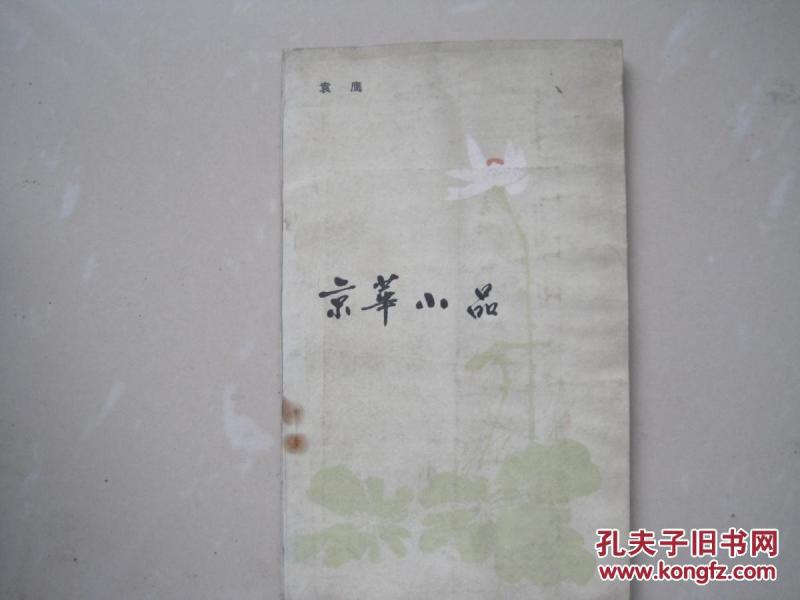 袁 鹰
京華小品
孔夫子旧书网
www.kongfz.com